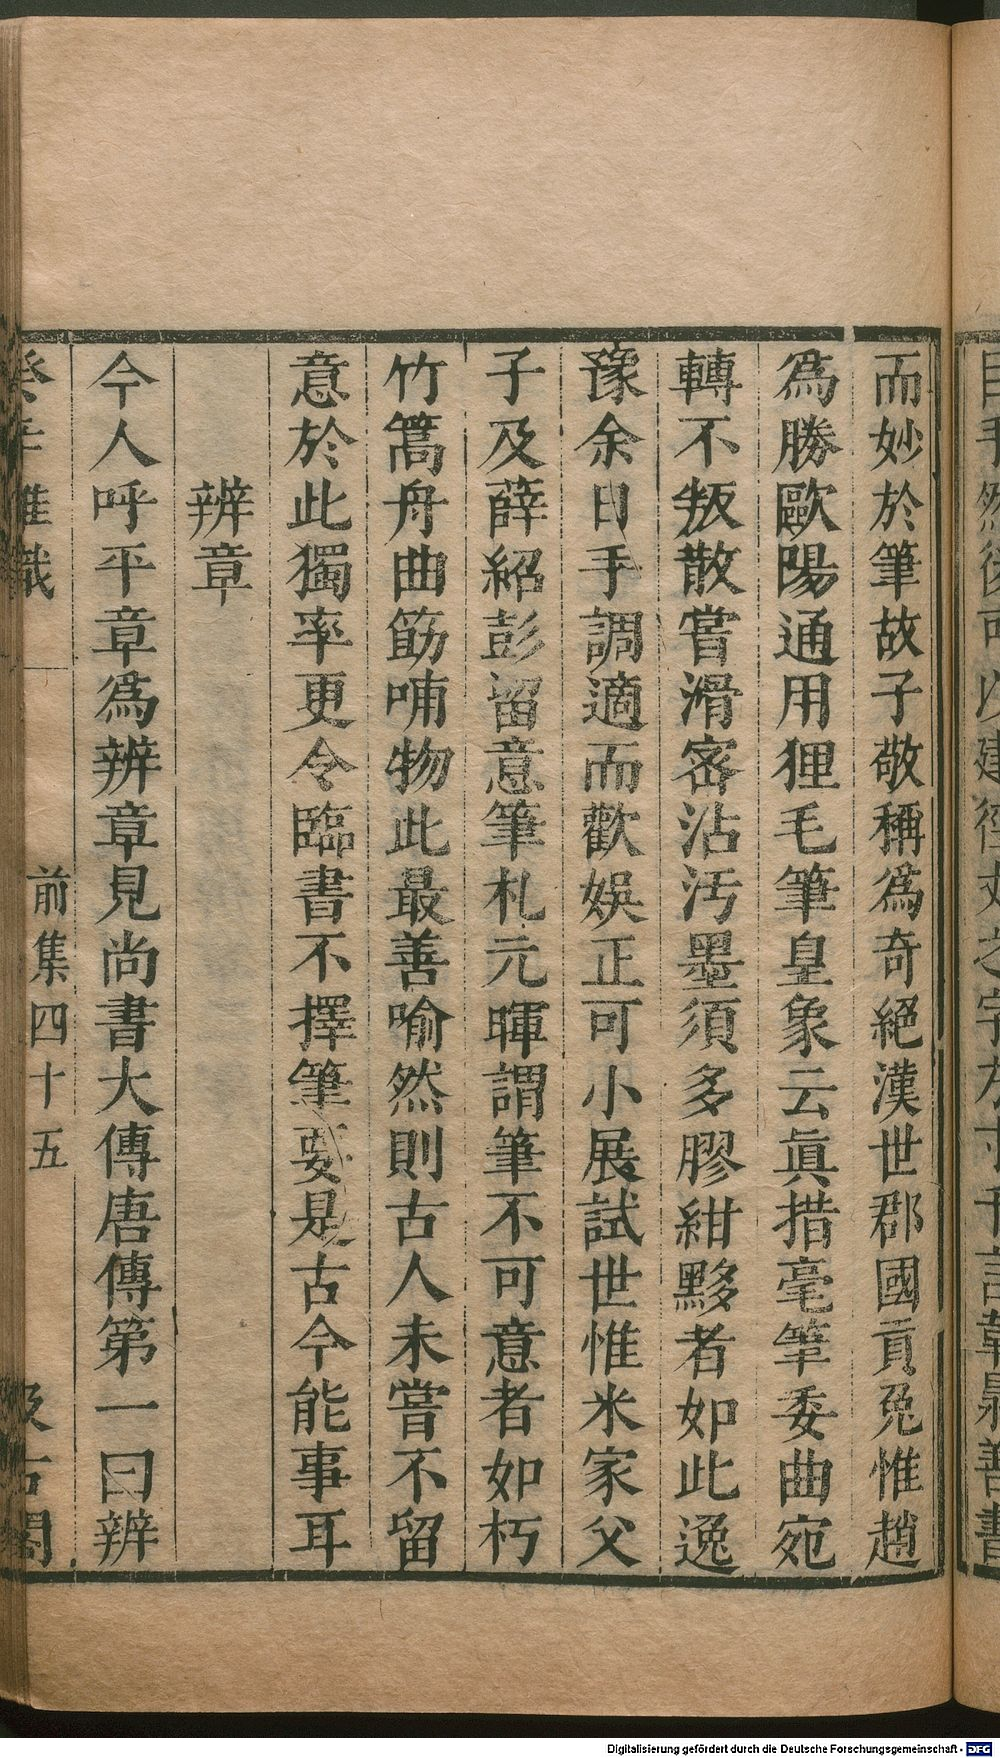 而妙於筆故子敬稱爲奇絕漢世郡國貢兎惟趙
爲勝歐陽通用狸毛筆皇象云眞措毫筆委曲宛
轉不叛散嘗滑密沾汚墨須多膠紺黟者如此逸
豫余日手調適而歡娛正可小展試世惟米家父
子及薛紹彭留意筆札元暉謂筆不可意者如朽
竹篙舟曲筯哺物此最善喻然則古人未嘗不留
意於此獨率更令臨書不擇筆要是古今能事耳
辨章
今人呼平章爲辨章見尚書大傳唐傳第一曰辨
前集四十五
Digitalisierung gefördert durch die Deutsche Forschungsgemeinschaft - DFG